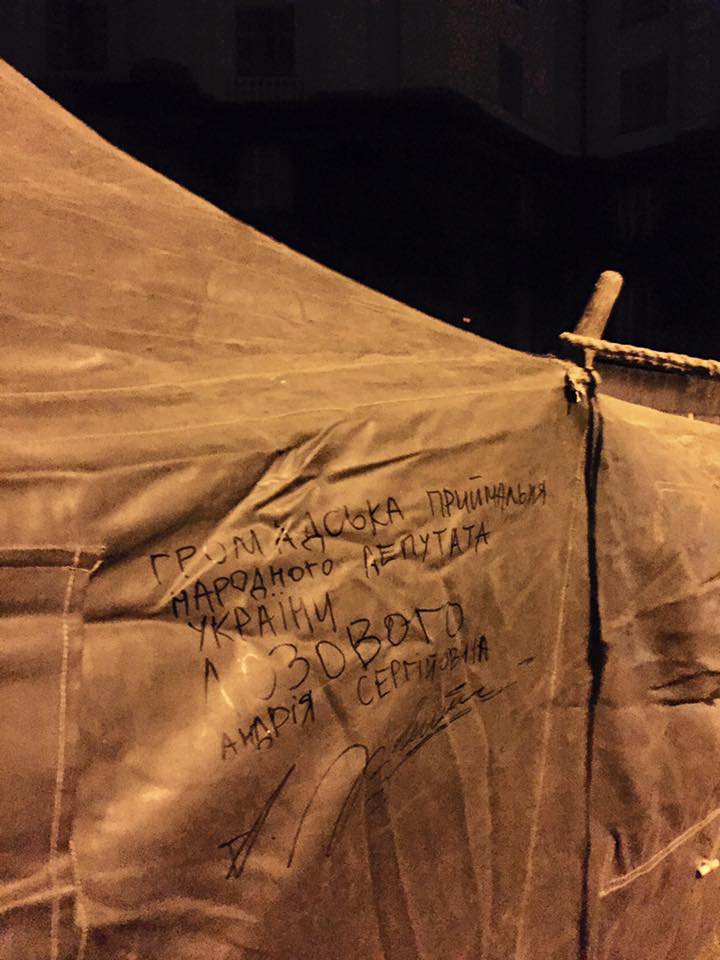 ГРОМАДСЬКА ПРИЙМАЛЬНЯ
НАРОДНОГО ДЕПУТАТА
УКРАЇНИ
ЛОЗОВОГО
АНДРІЯ СЕРГІЙОВИЧА